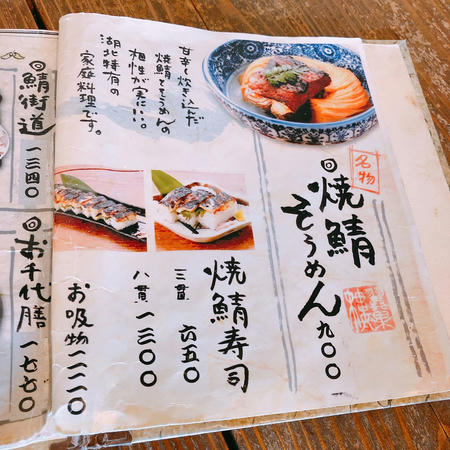 名物
焼鯖そうめん 九〇〇
甘辛く炊き込んだ
焼鯖とそうめんの
相性が実にいい。
湖北特有の
家庭料理です。
焼鯖寿司
三貫 六五〇
八貫 一三〇〇
お吸物 一二一〇
鯖街道 一三四〇
お千代膳 一七七〇